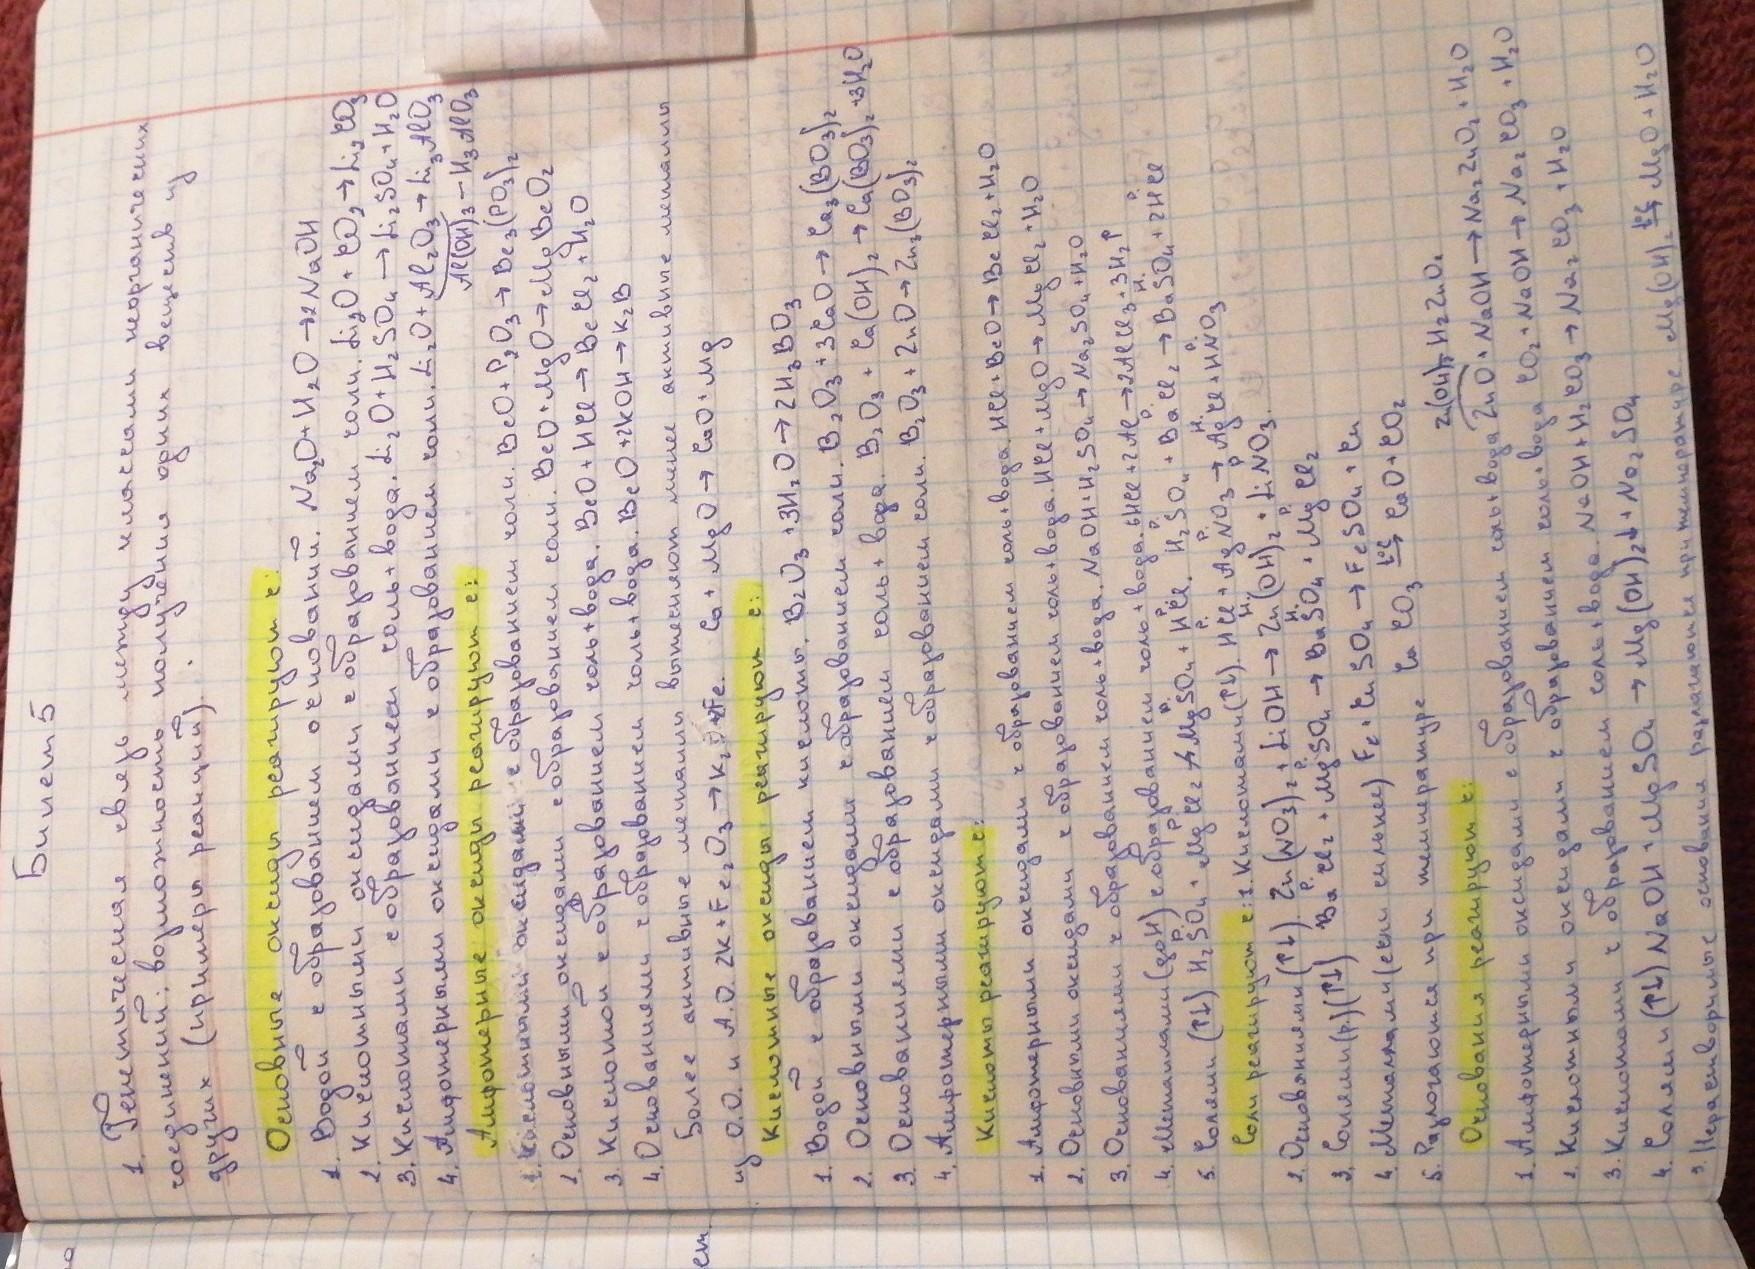 Билет 5
1. Генетическая связь между классами неорганических
соединений: возможность получения одних веществ из
других (примеры реакций).
Основные оксиды реагируют с:
1. Водой с образованием оснований. Na₂O+H₂O→2NaOH
2. Кислотными оксидами с образованием соли. Li₂O+CO₂→Li₂CO₃
3. Кислотами с образованием соль+вода. Li₂O+H₂SO₄→Li₂SO₄+H₂O
4. Амфотерными оксидами с образованием соли. Li₂O+Al₂O₃→Li₃AlO₃
Al(OH)₃–H₃AlO₃
Амфотерные оксиды реагируют с:
1. Кислотными оксидами с образованием соли. BeO+P₂O₃→Be₃(PO₃)₂
2. Основными оксидами с образованием соли. BeO+MgO→MgBeO₂
3. Кислотой с образованием соль+вода. BeO+HCl→BeCl₂+H₂O
4. Основаниями с образованием соль+вода. BeO+2KOH→K₂B
Более активные металлы вытесняют менее активные металлы
из О.О. и А.О. 2K+Fe₂O₃→K₂O+Fe. Ca+MgO→CaO+Mg
Кислотные оксиды реагируют с:
1. Водой с образованием кислоты. B₂O₃+3H₂O→2H₃BO₃
2. Основными оксидами с образованием соли. B₂O₃+3CaO→Ca₃(BO₃)₂
3. Основаниями с образованием соль+вода. B₂O₃+Ca(OH)₂→Ca(BO₃)₂+3H₂O
4. Амфотерными оксидами с образованием соли. B₂O₃+ZnO→Zn₃(BO₃)₂
Кислоты реагируют с:
1. Амфотерными оксидами с образованием соль+вода. HCl+BeO→BeCl₂+H₂O
2. Основными оксидами с образованием соль+вода. HCl+MgO→MgCl₂+H₂O
3. Основаниями с образованием соль+вода. NaOH+H₂SO₄→Na₂SO₄+H₂O
4. Металлами (доH) с образованием соль+вода. 6HCl+2Al→2AlCl₃+3H₂↑
5. Солями (↑↓) H₂SO₄+MgCl₂↛MgSO₄+HCl. H₂SO₄+BaCl₂→BaSO₄+2HCl
Соли реагируют с: 1. Кислотами (↑↓) HCl+AgNO₃→AgCl+HNO₃
2. Основаниями (↑↓) Zn(NO₃)₂+LiOH→Zn(OH)₂+LiNO₃.
3. Солями (р.) (↑↓) BaCl₂+MgSO₄→BaSO₄+MgCl₂
4. Металлами (если сильнее) Fe+CuSO₄→FeSO₄+Cu
5. Разлогаются при температуре CaCO₃ →(t°C) CaO+CO₂
Zn(OH)₂–H₂ZnO₂
Основания реагируют с:
1. Амфотерными оксидами с образованием соль+вода ZnO+NaOH→Na₂ZnO₂+H₂O
2. Кислотными оксидами с образованием соль+вода CO₂+NaOH→Na₂CO₃+H₂O
3. Кислотами с образованием соль+вода. NaOH+H₂CO₃→Na₂CO₃+H₂O
4. Солями (↑↓) NaOH+MgSO₄→Mg(OH)₂↓+Na₂SO₄
5. Нерастворимые основания разлагаются при температуре. Mg(OH)₂ →(t°C) MgO+H₂O